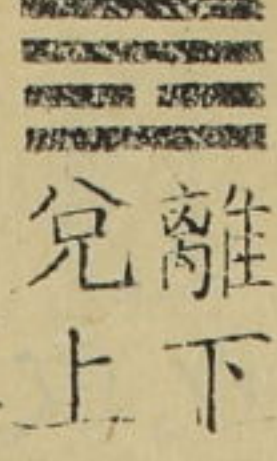 離下
兌上